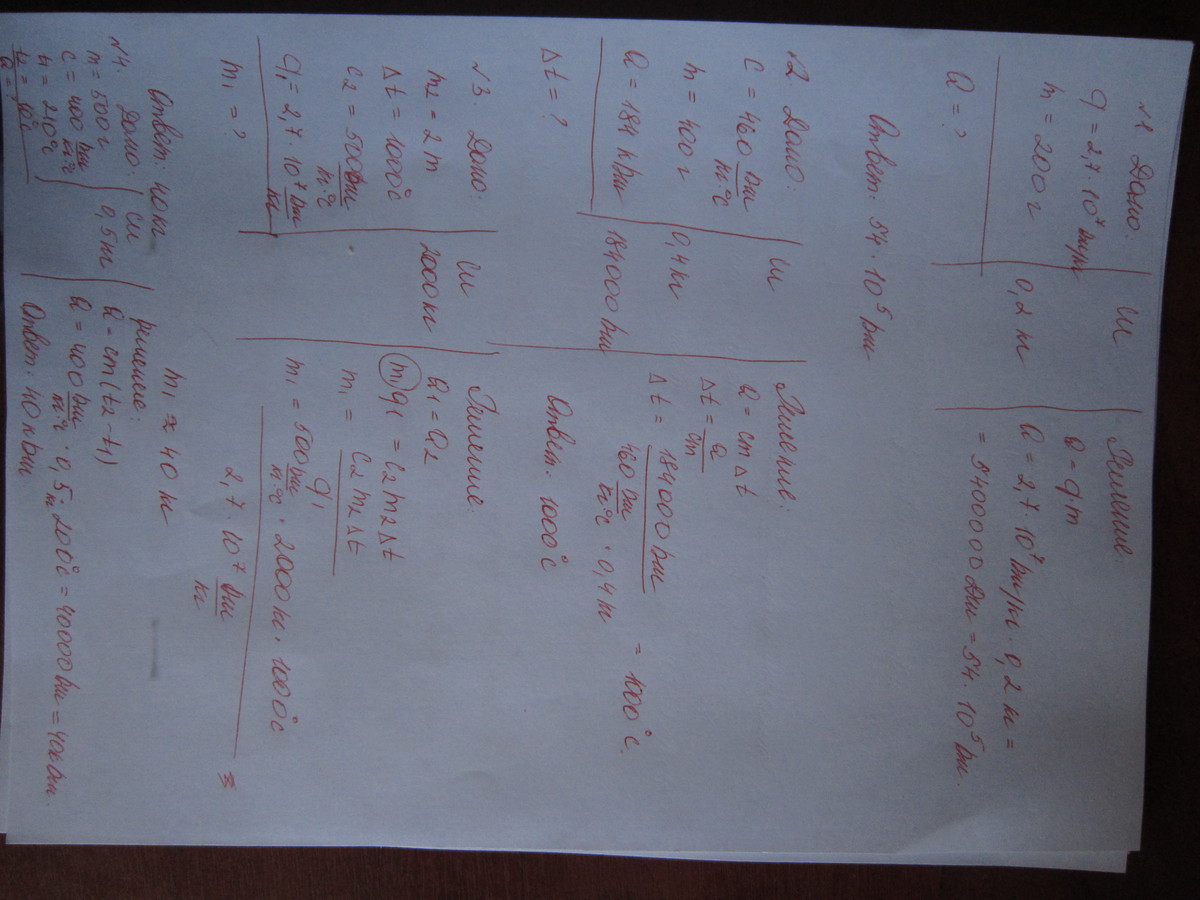 №1 Дано:
q = 2,7 · 10⁷ Дж/кг
m = 200 г
Q = ?
СИ
0,2 кг
Решение:
Q = q · m
Q = 2,7 · 10⁷ Дж/кг · 0,2 кг =
= 5400000 Дж = 54 · 10⁵ Дж.
Ответ: 54 · 10⁵ Дж
№2. Дано:
C = 460 Дж/кг·°C
m = 400 г
Q = 184 кДж
Δt = ?
СИ
0,4 кг
184000 Дж
Решение:
Q = cmΔt
Δt = Q/cm
Δt = 184000 Дж / 460 Дж/кг·°C · 0,4 кг = 1000°C.
Ответ: 1000°C
№3. Дано:
m₂ = 2 т
Δt = 1000°C
c₂ = 500 Дж/кг·°C
q₁ = 2,7 · 10⁷ Дж/кг
m₁ = ?
СИ
2000 кг
Решение:
Q₁ = Q₂
m₁q₁ = c₂m₂Δt
m₁ = c₂m₂Δt / q₁
m₁ = 500 Дж/кг·°C · 2000 кг · 1000°C / 2,7 · 10⁷ Дж/кг ≈
m₁ ≈ 40 кг
Ответ: 40 кг
№4. Дано:
m = 500 г
C = 400 Дж/кг·°C
t₁ = 210°C
t₂ = 10°C
Q = ?
СИ
0,5 кг
Решение:
Q = cm(t₂ - t₁)
Q = 400 Дж/кг·°C · 0,5 кг · 200°C = 40000 Дж = 40 кДж.
Ответ: 40 кДж